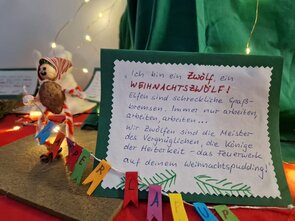 „Ich bin ein Zwölf, ein
WEIHNACHTSZWÖLF!
Elfen sind schreckliche Spaß-
bremsen. Immer nur arbeiten,
arbeiten, arbeiten...
Wir Zwölfen sind die Meister
des Vergnüglichen, die Könige
der Heiterkeit – das Feuerwerk
auf deinem Weihnachtspudding!